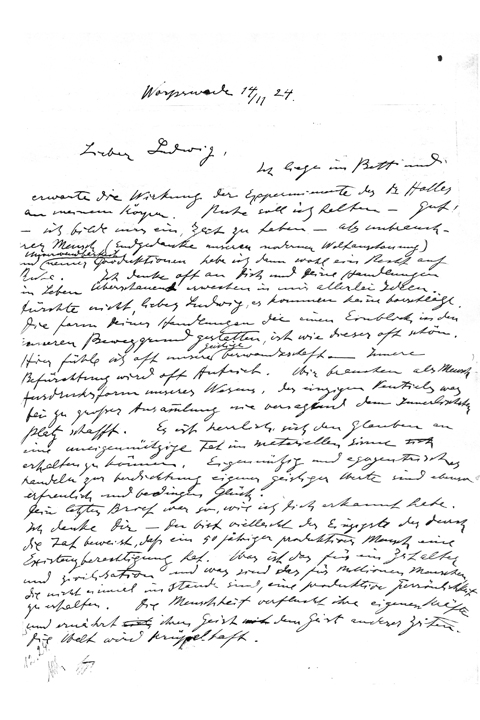 Worpswede 14/11 24.
Lieber Ludwig,
Ich liege im Bett und
erwarte die Wirkung der Experimente des Dr Holles
an meinem Körper. Ruhe soll ich halten – Gut!
– ich bilde mir ein, Zeit zu haben – als unbrauch-
rer Mensch (Endgedanke unserer modernen Weltanschauung)
und meiner Produktionen habe ich dann wohl ein Recht auf
Ruhe. Ich denke oft an Dich und Deine Handlungen
im Leben erwecken in mir allerlei Ideen.
Fürchte nicht, lieber Ludwig, es kommen keine
Die Form Deiner Handlungen die einen Einblick in den
inneren Beweggrund gestatten, ist wie dieser oft schön.
Hier fühle ich oft unsere geistige Verwandschaft – Innere
Befürchtung wird oft Wir brauchen als Mensch
unseres Wesens, das einzige Ventil was
bei zu großer Ansammlung dem
Platz schafft. Es ist herrlich, sich den Glauben an
eine uneigennützige Tat im materiellen Sinne
erhalten zu können. Eigennützig und egozentrisches
handeln zur eigener geistiger Werte sind ebenso
erfreulich und bedingen Glück.
Dein letzter Brief war so, wie ich Dich erkannt habe.
Ich danke Dir – Du bist vielleicht der Einzigste der durch
die Tat beweist, daß ein 50 jähriger produktiver Mensch eine
Existenzberechtigung hat. Was ist das für ein Zeitalter
und Zivilisation und was sind das für Millionen Menschen
die nicht einmal imstande sind, eine produktive Persönlichkeit
zu erhalten. Die Menschheit verflucht ihre eigenen Kräfte
und ernährt ihren Geist mit dem Geist anderer Zeiten.
Die Welt wird krüppelhaft.